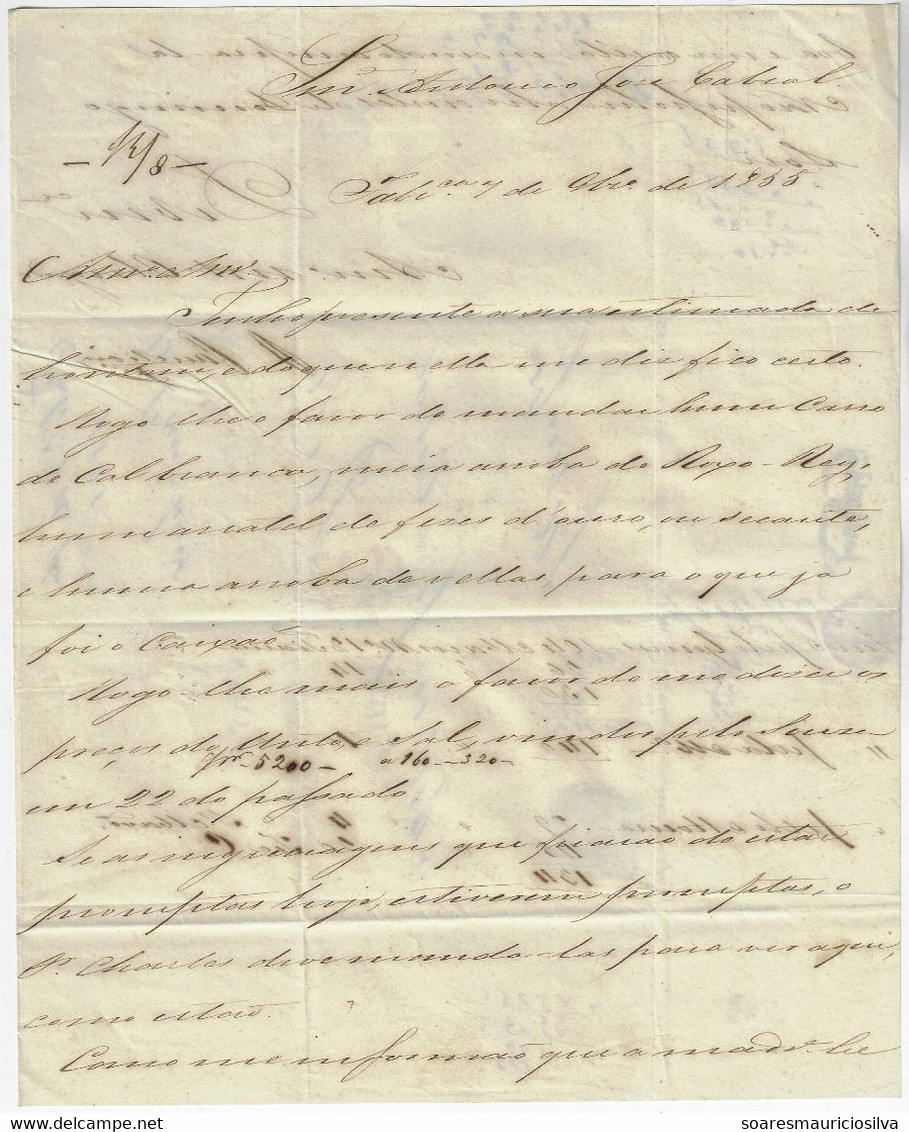 Snr. Antonio Jose Cabral
— 12/8 —
Fabrca 7 de 9bro. de 1855
Amo. e Snr.
Tenho presente a sua estimada de
hontem, e do que nella me diz fico certo.
Rogo lhe o favor de mandar hum Carro
de Cal branca, meia arroba de Roxo-Rey,
hum arratel de fezes d'ouro, ou secante,
e huma arroba de vellas, para o que ja
foi o Caixaõ.
Rogo lhe mais o favor de me dizer os
preços do Unto, e Sal, vindos pelo Souza
5200 — a 160 — 320 —
em 22 do passado
Se as ingrenagens que ficaraõ de estar
promptas hoje, estiverem promptas, o
Sr. Charles deve manda-las para ver aqui,
como estaõ.
Como me informaõ que a madra. he
soaresmauriciosilva